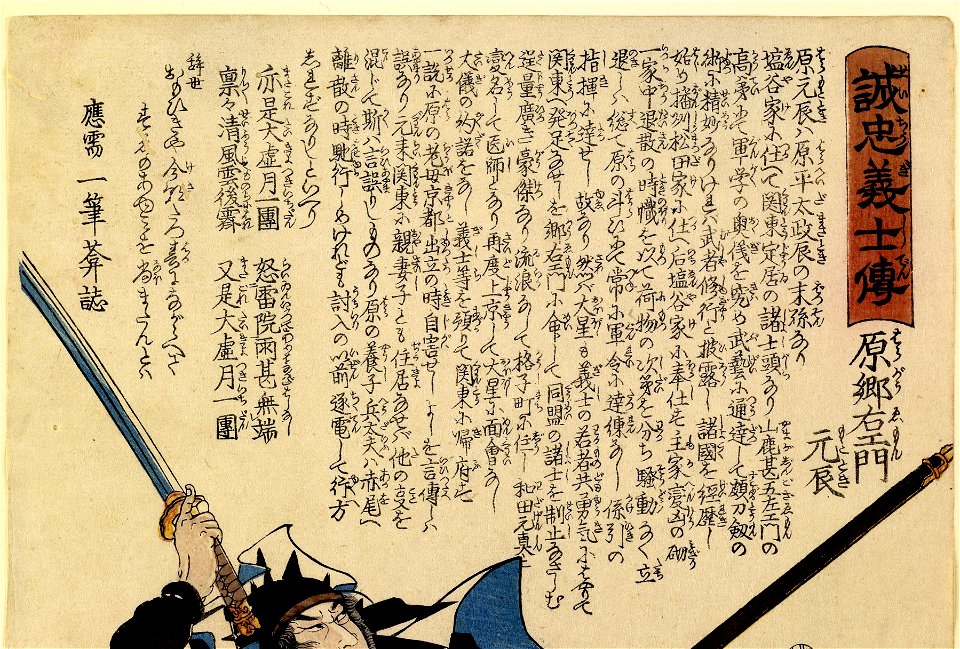 誠忠義士傳
原郷右エ門
元辰
原元辰ハ原平太政辰の末孫なり
塩谷家に仕て関東定居の諸士頭なり山鹿甚五左エ門の
高弟にて軍学の奥儀を究め武藝に通達して頗刀劔の
術に精妙なりければ武者修行と披露し諸國を経歴し
始め播州松田家に仕へ后塩谷家に奉仕を主家変凶の砌
一家中退散の時幟を以て荷物の次第を分ち騒動なく立
退しハ総て原の斗ひにて常に軍令に達練なし係引の
指揮に達せし故なり然バ大星も義士の若者共勇気にはやりて
関東へ発足なさしを郷右エ門に命して同盟の諸士を制止なさしむ
逞量廣き豪傑なり流浪なして格子町に住し和田元真と
変名して医師となり再度上京して大星に面會なし
大儀の約諾をなし義士等を預りて関東に帰府せり
一説に原の老母京都出立の時自害せしよしを言傳しハ
誤なり元来関東に親妻子とも住居なせバ他の変を
混じて斯ハ言誤りしものなり原の養子兵太夫ハ赤尾へ
離散の時熟行しめけれども討入の以前逐電して行方
しれずなりしといへり
亦是大虚月一團　怒雷院雨甚無端
凛々清風雲後霽　又是大虚月一團
辞世
應需　一筆葊誌